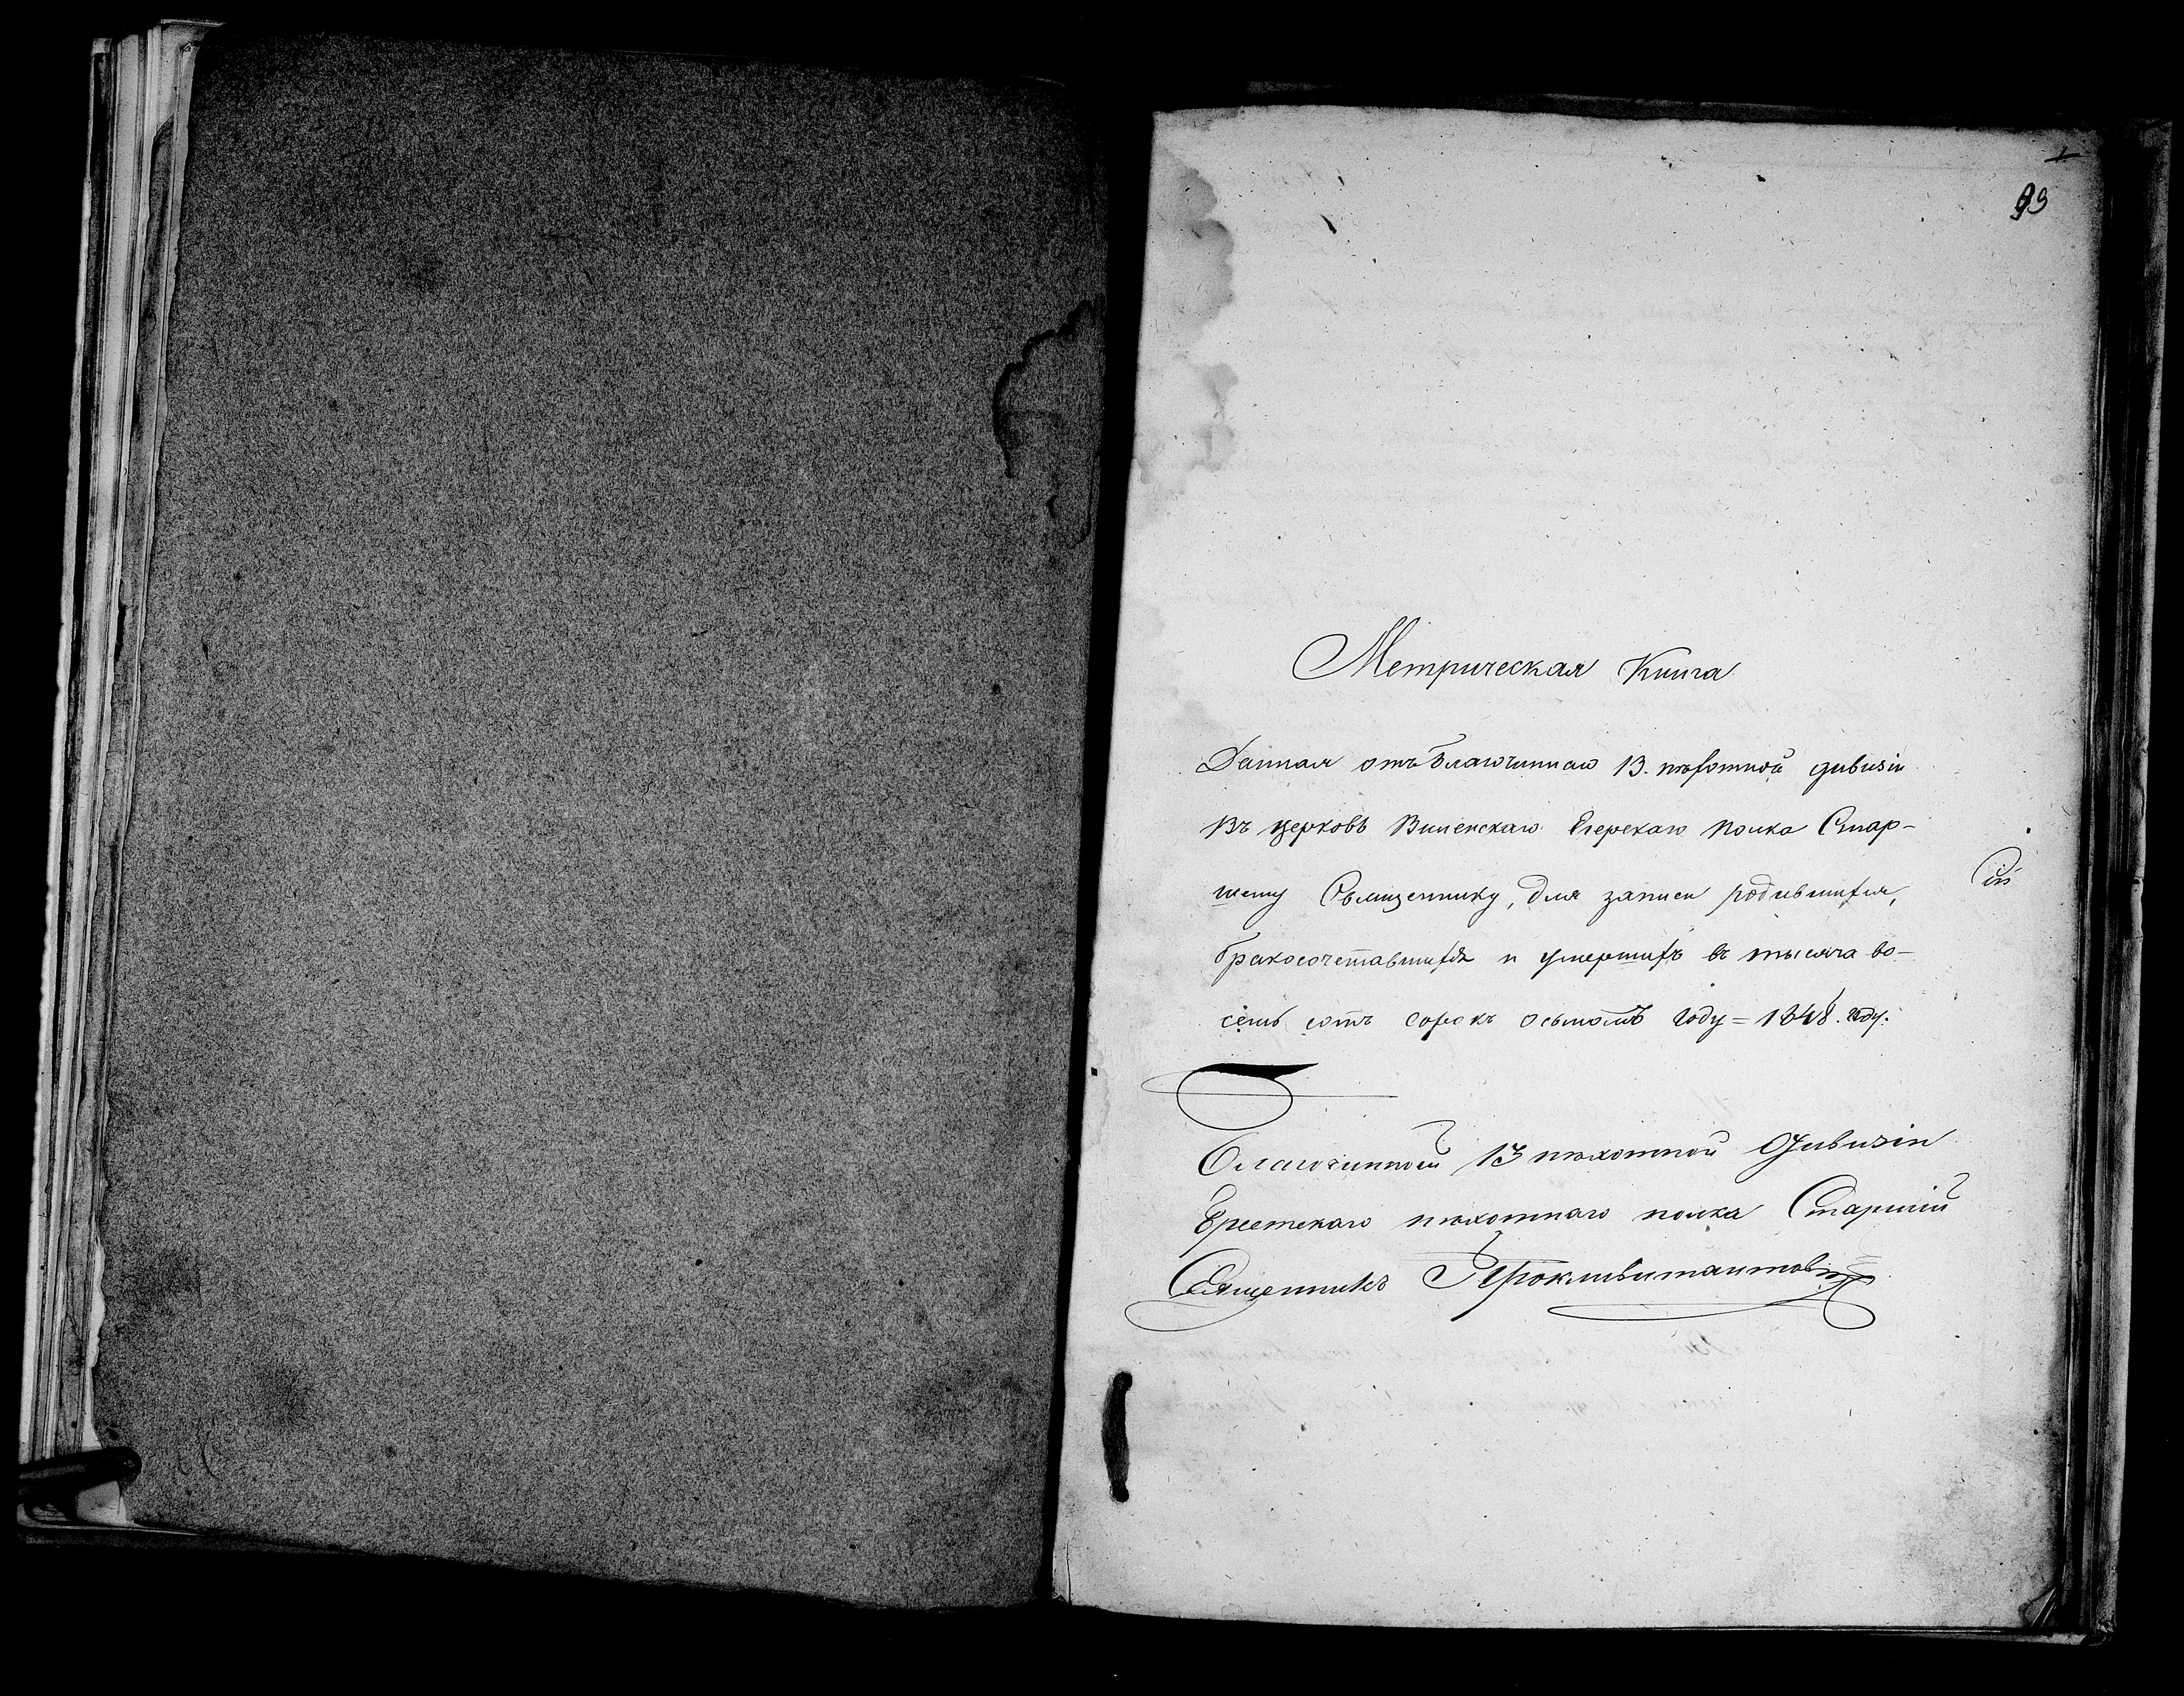 93
Метрическая Книга
Данная отъ благочиннаго 13. пѣхотной дивизіи
въ церковь Виленскаго Егерскаго полка Стар-
шему Священнику, для записи родившихся,
бракосочетавшихся и умершихъ въ тысяча во-
семь сотъ сорокъ осьмомъ году = 1848. году.
Благочинный 13 пѣхотной Дивизіи
Брестскаго пѣхотнаго полка Старшій
Священникъ